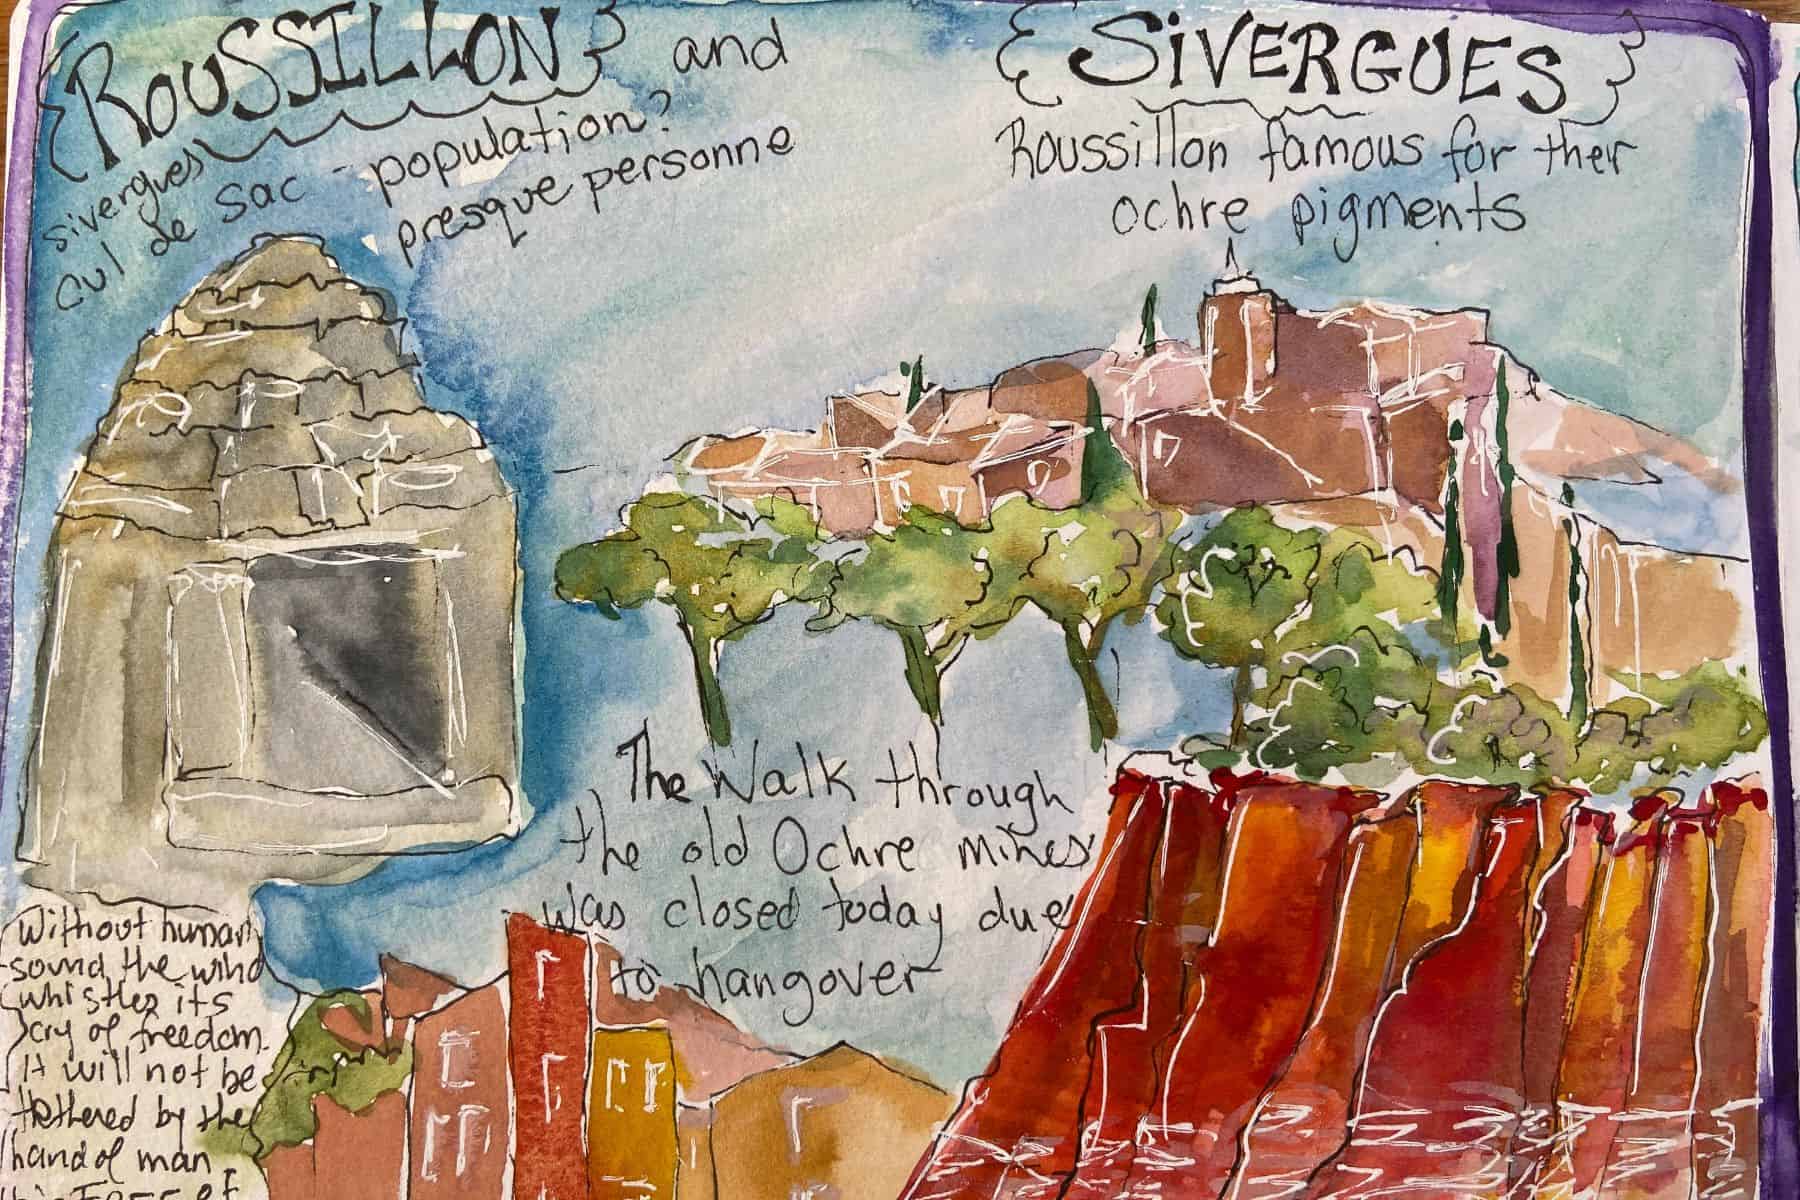 {ROUSSILLON} and
{SIVERGUES}
sivergues
cul de sac - population?
presque personne
Roussillon famous for their
ochre pigments
The Walk through
the old Ochre mines
was closed today due
to hangover
Without human
sound the wind
whistles its
cry of freedom.
It will not be
tethered by the
hand of man